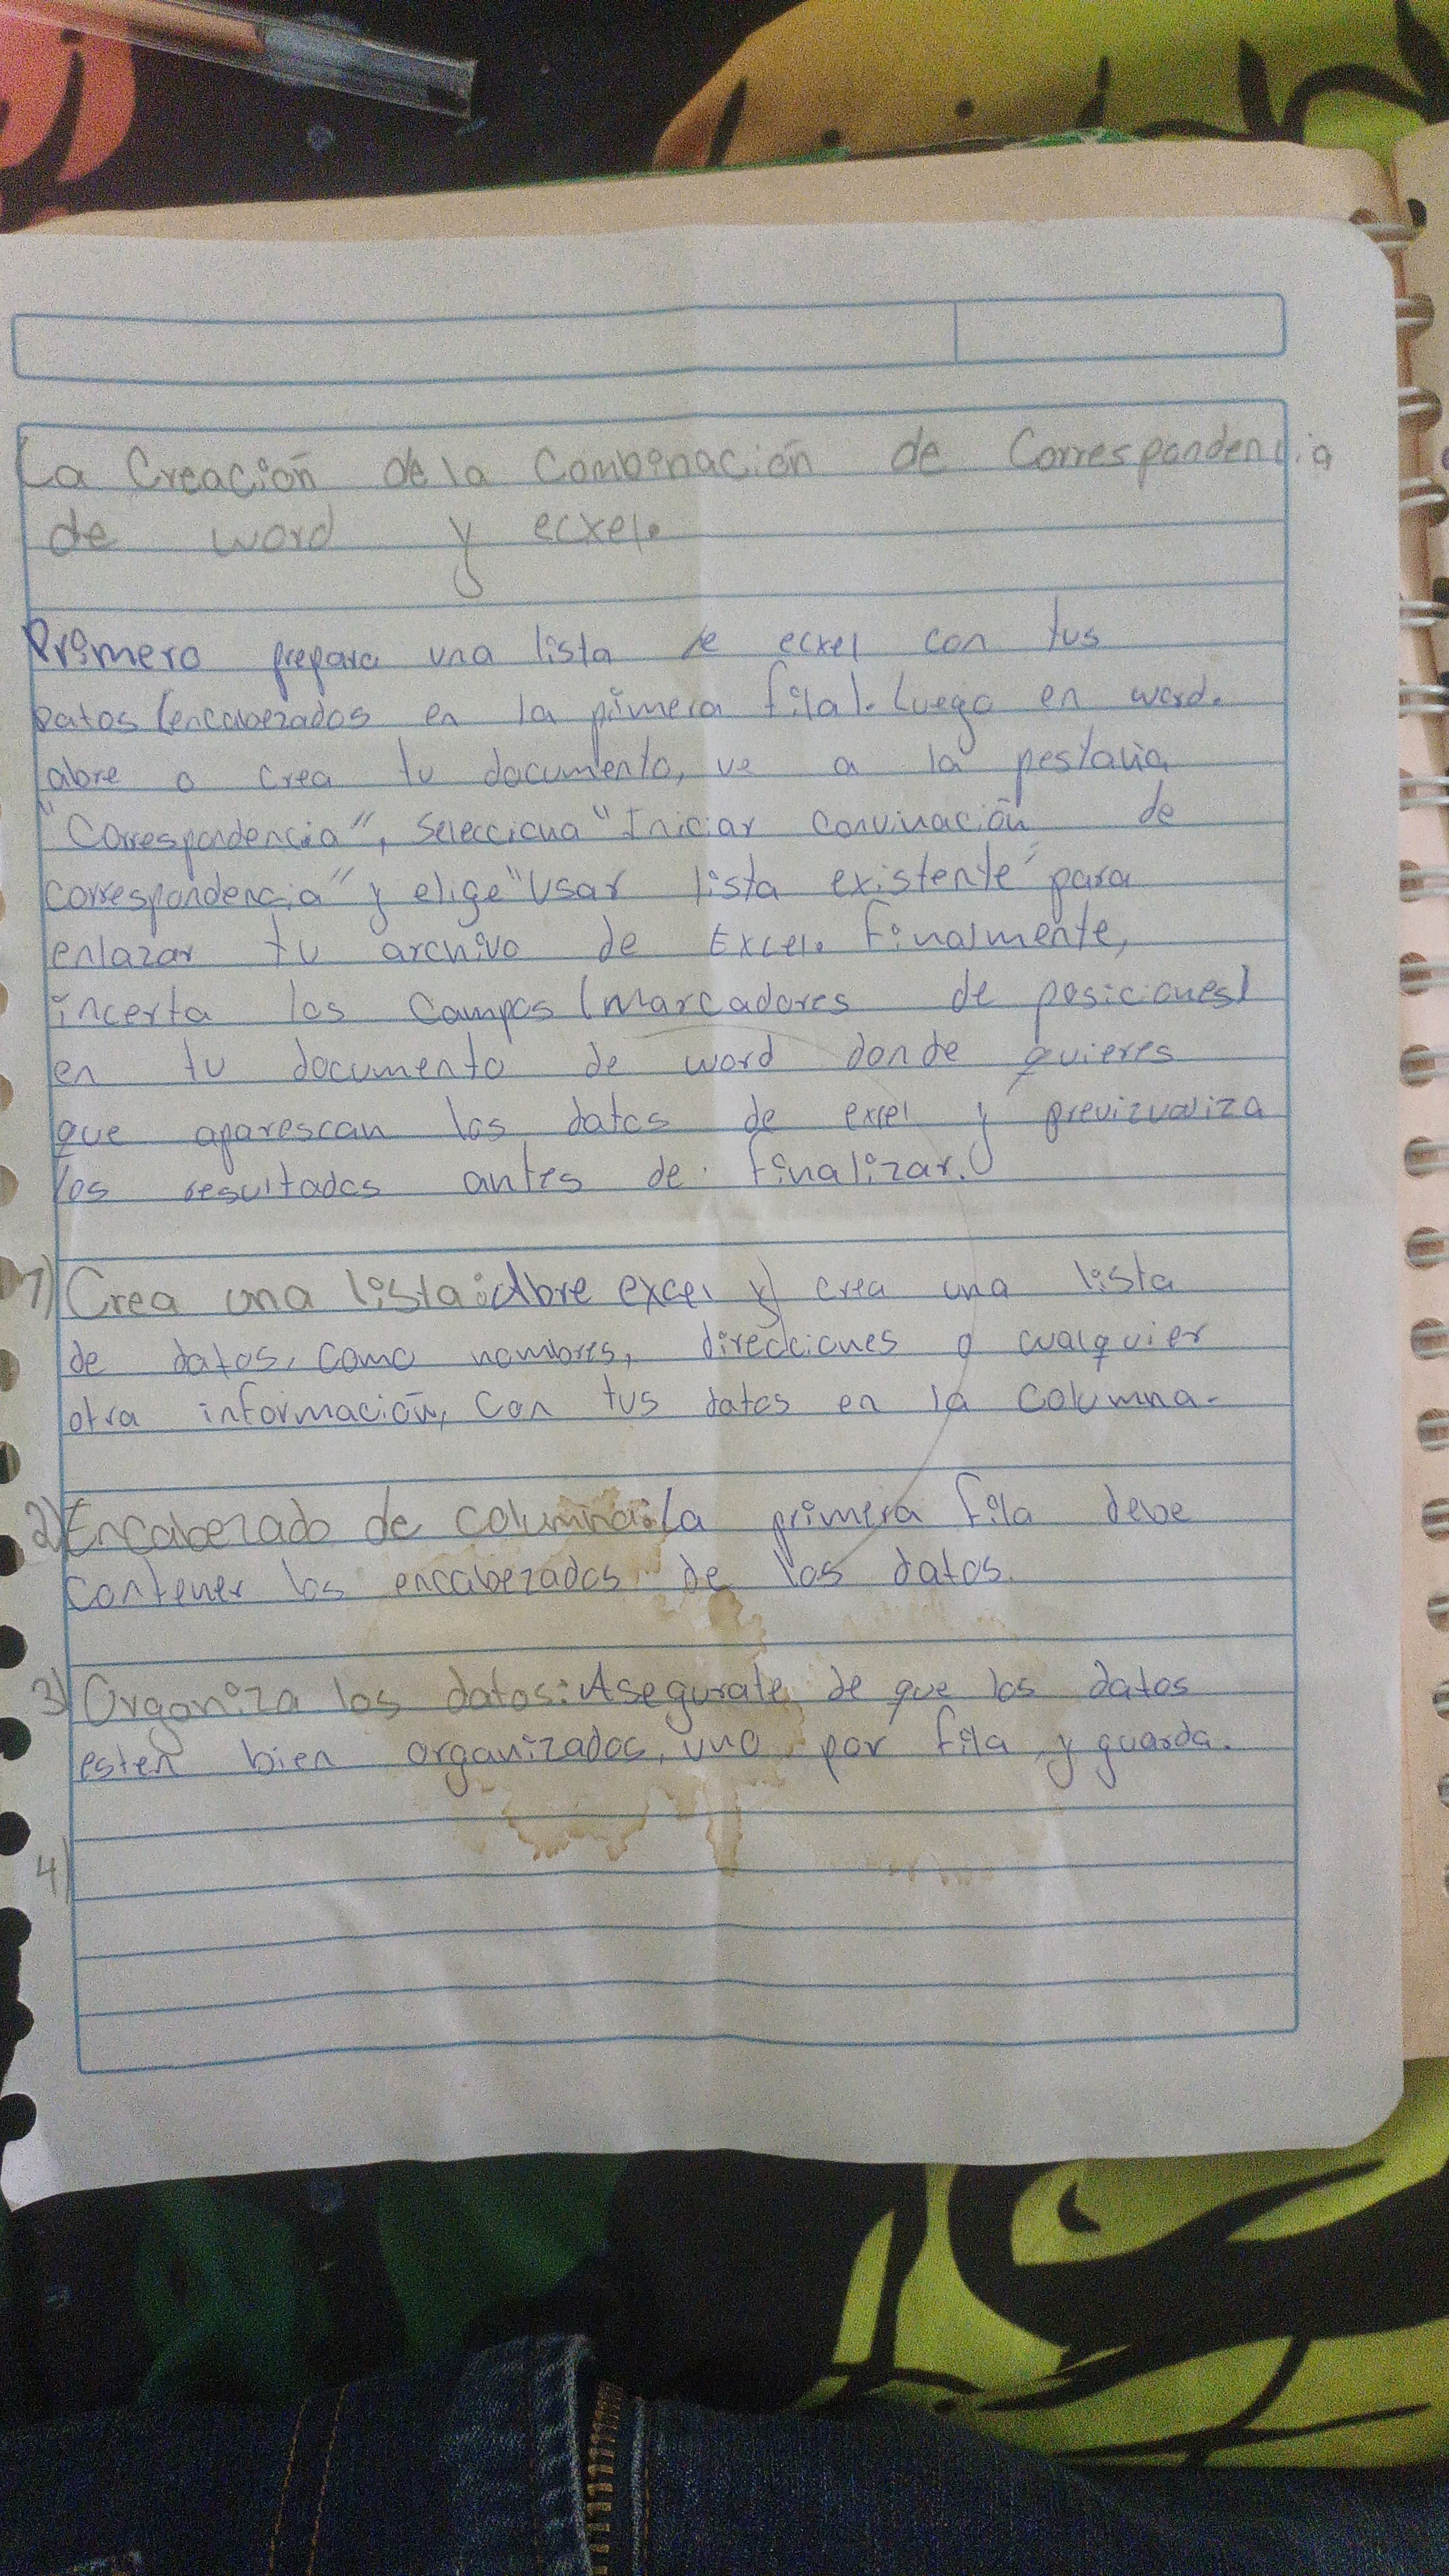 La Creación de la Combinación de Correspondencia
de word y ecxel.
Primero prepara una lista de ecxel con tus
Datos (encabezados en la primera fila). Luego en word.
abre o crea tu documento, ve a la pestaña
"Correspondencia", Selecciona "Iniciar convinación de
correspondencia" y elige "Usar lista existente" para
enlazar tu archivo de Excel. Finalmente,
incerta los Campos (Marcadores de posiciones)
en tu documento de word donde quieres
que aparescan los datos de excel y previzualiza
los resultados antes de finalizar.
1) Crea una lista: Abre excel y crea una lista
de datos, como nombres, direcciones o cualquier
otra información, con tus datos en la columna.
2) Encabezado de columna: La primera fila debe
contener los encabezados de los datos.
3) Organiza los datos: Asegurate de que los datos
esten bien organizados, uno por fila y guarda.
4)